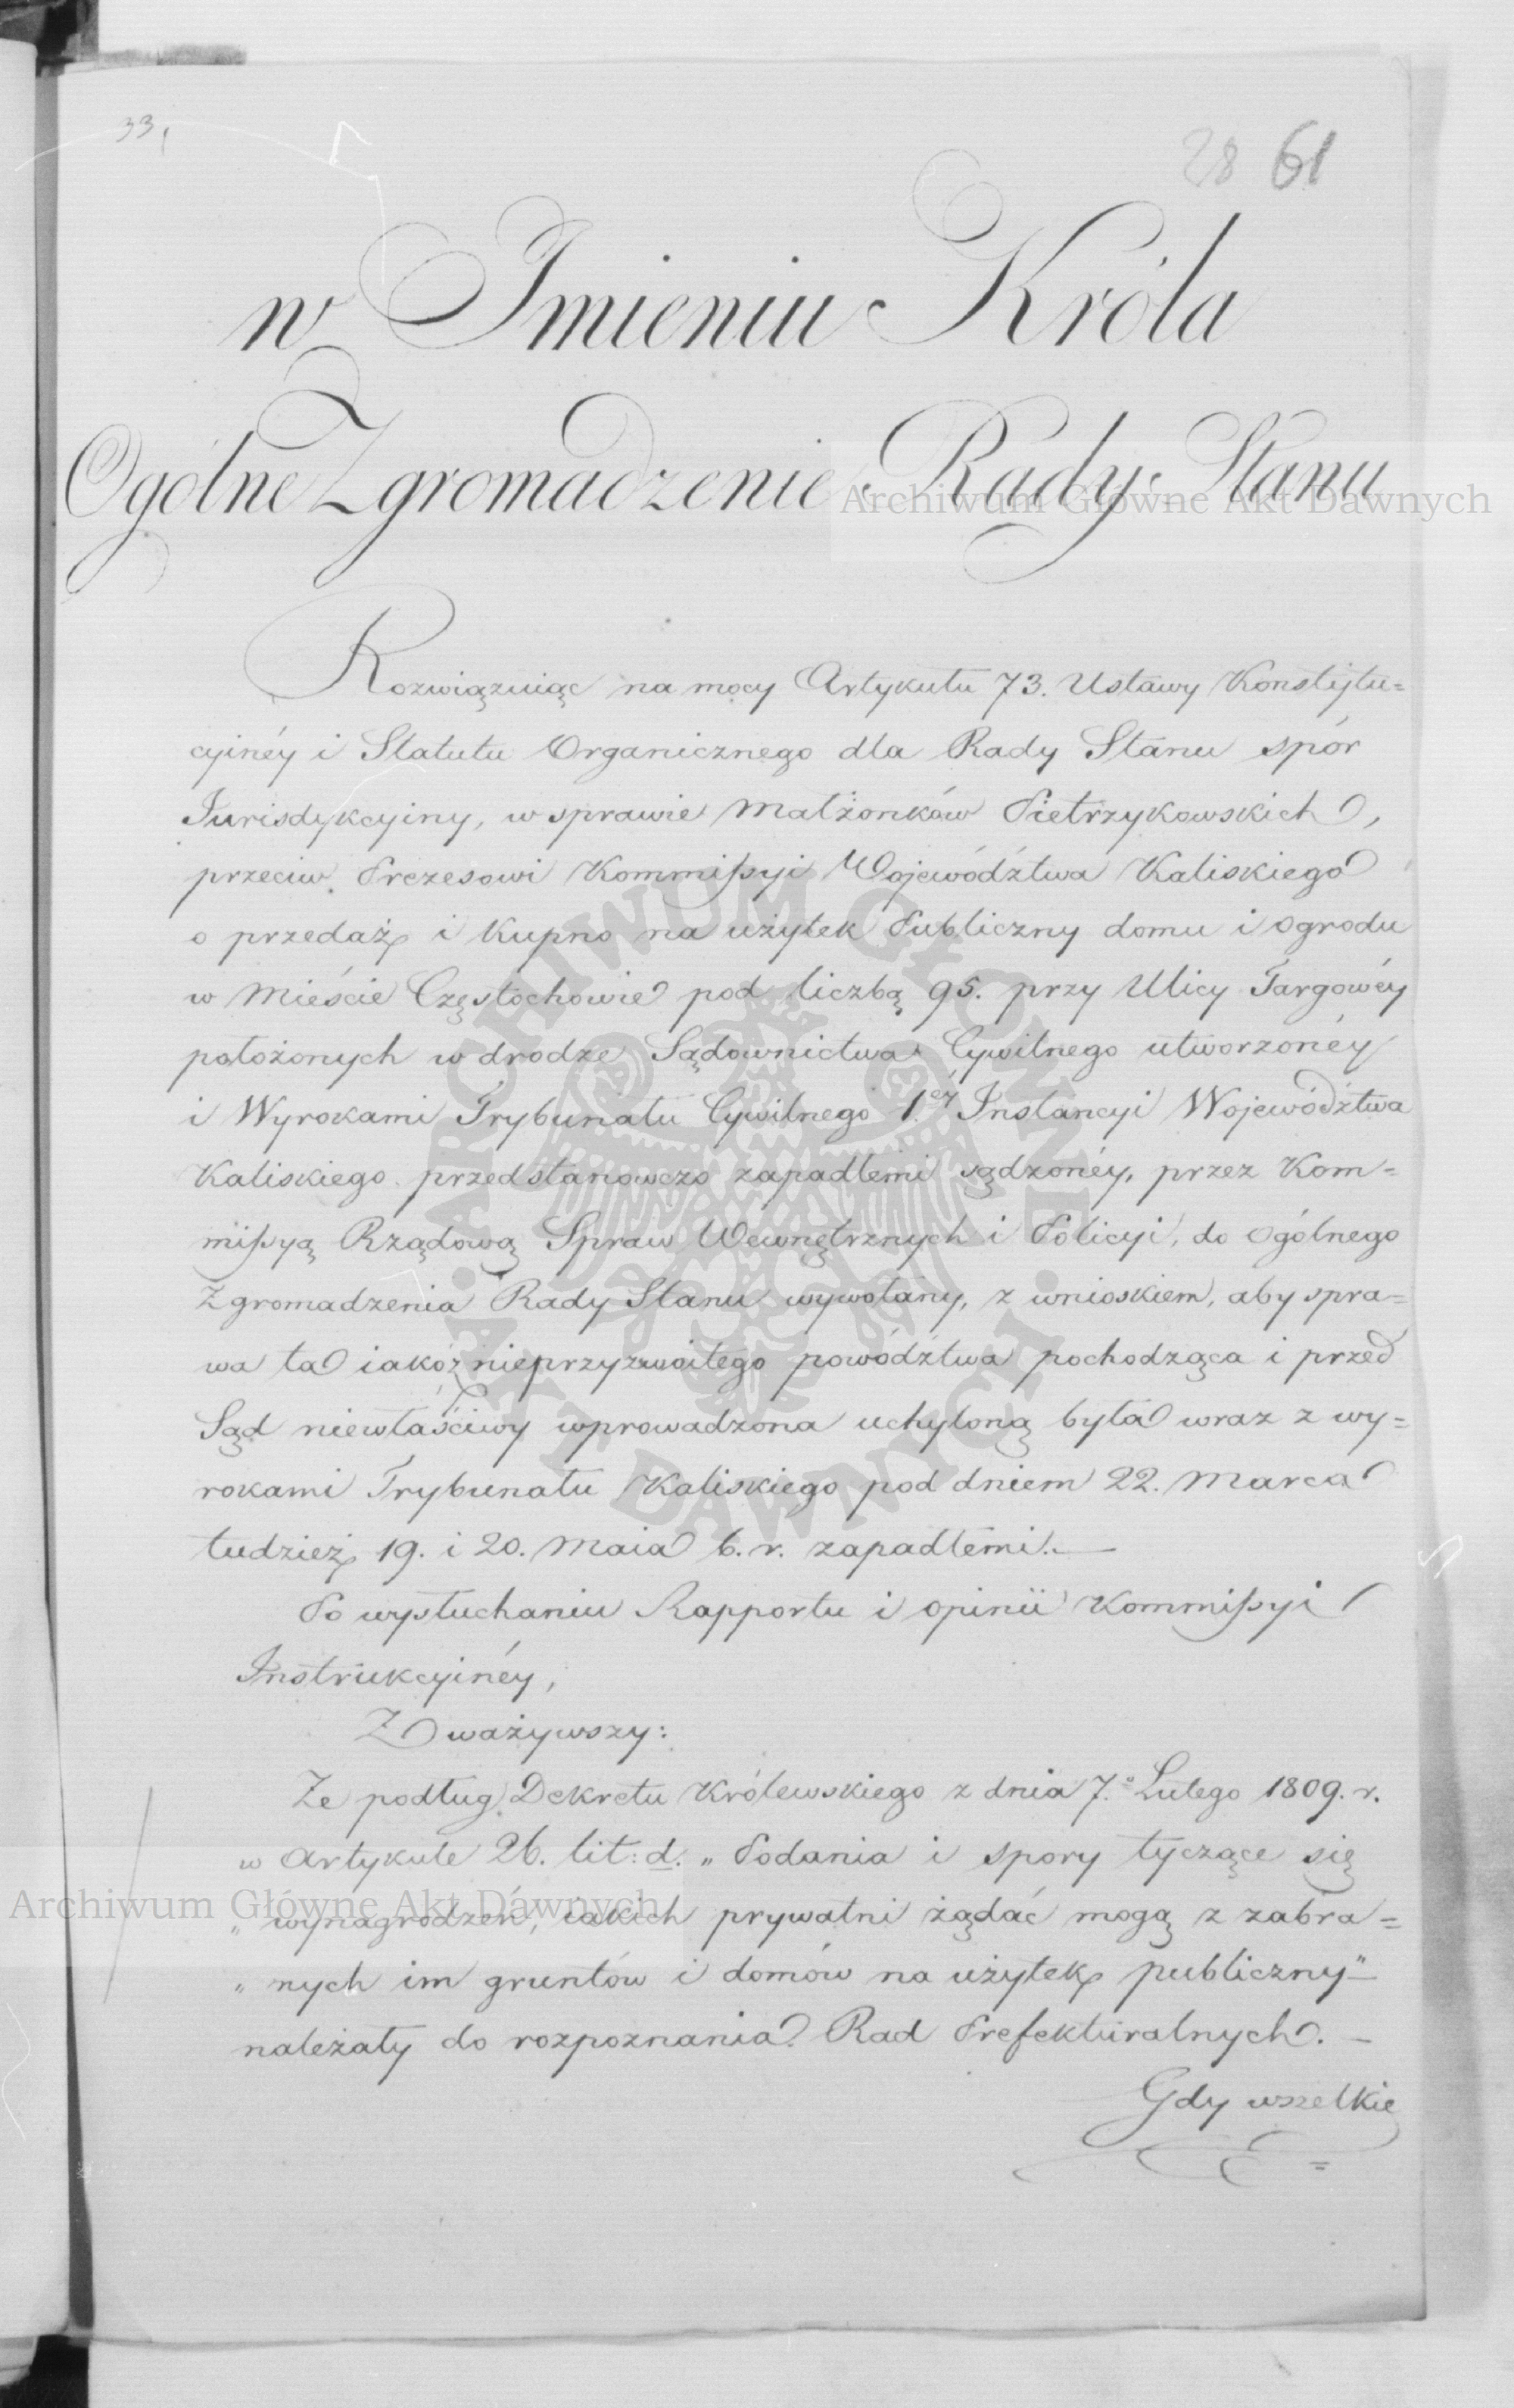 33,
28 61
w Imieniu Króla
Ogólne Zgromadzenie Rady Stanu
Archiwum Główne Akt Dawnych
Rozwiązuiąc na mocy Artykułu 73. Ustawy Konstytu=
cyinéy i Statutu Organicznego dla Rady Stanu spór
Jurisdykcyiny, w sprawie Małżonków Pietrzykowskich,
przeciw Prezesowi Kommissyi Województwa Kaliskiego
o przedaż i kupno na użytek Publiczny domu i ogrodu
w Mieście Częstochowie pod liczbą 95. przy Ulicy Targowéy
położonych w drodze Sądownictwa Cywilnego utworzonéy
i Wyrokami Trybunału Cywilnego 1.éy Instancyi Województwa
Kaliskiego przedstanowczo zapadłemi sądzonéy, przez Kom=
missyą Rządową Spraw Wewnętrznych i Policyi, do Ogólnego
Zgromadzenia Rady Stanu wywołany, z wnioskiem, aby spra=
wa ta iako z nieprzyzwoitego powództwa pochodząca i przed
Sąd niewłaściwy wprowadzona uchyloną była wraz z wy=
rokami Trybunału Kaliskiego pod dniem 22. Marca
tudzież 19. i 20. Maia b. r. zapadłemi.
Po wysłuchaniu Rapportu i opinii Kommissyi
Instrukcyinéy,
Zważywszy:
Że podług Dekretu Królewskiego z dnia 7.º Lutego 1809. r.
w Artykule 26. lit: d. „ Podania i spory tyczące się
„ wynagrodzeń, iakich prywatni żądać mogą z zabra=
„ nych im gruntów i domów na użytek publiczny"
należały do rozpoznania Rad Prefekturalnych.
Gdy wszelkie
Archiwum Główne Akt Dawnych
ARCHIWUM GŁÓWNE AKT DAWNYCH